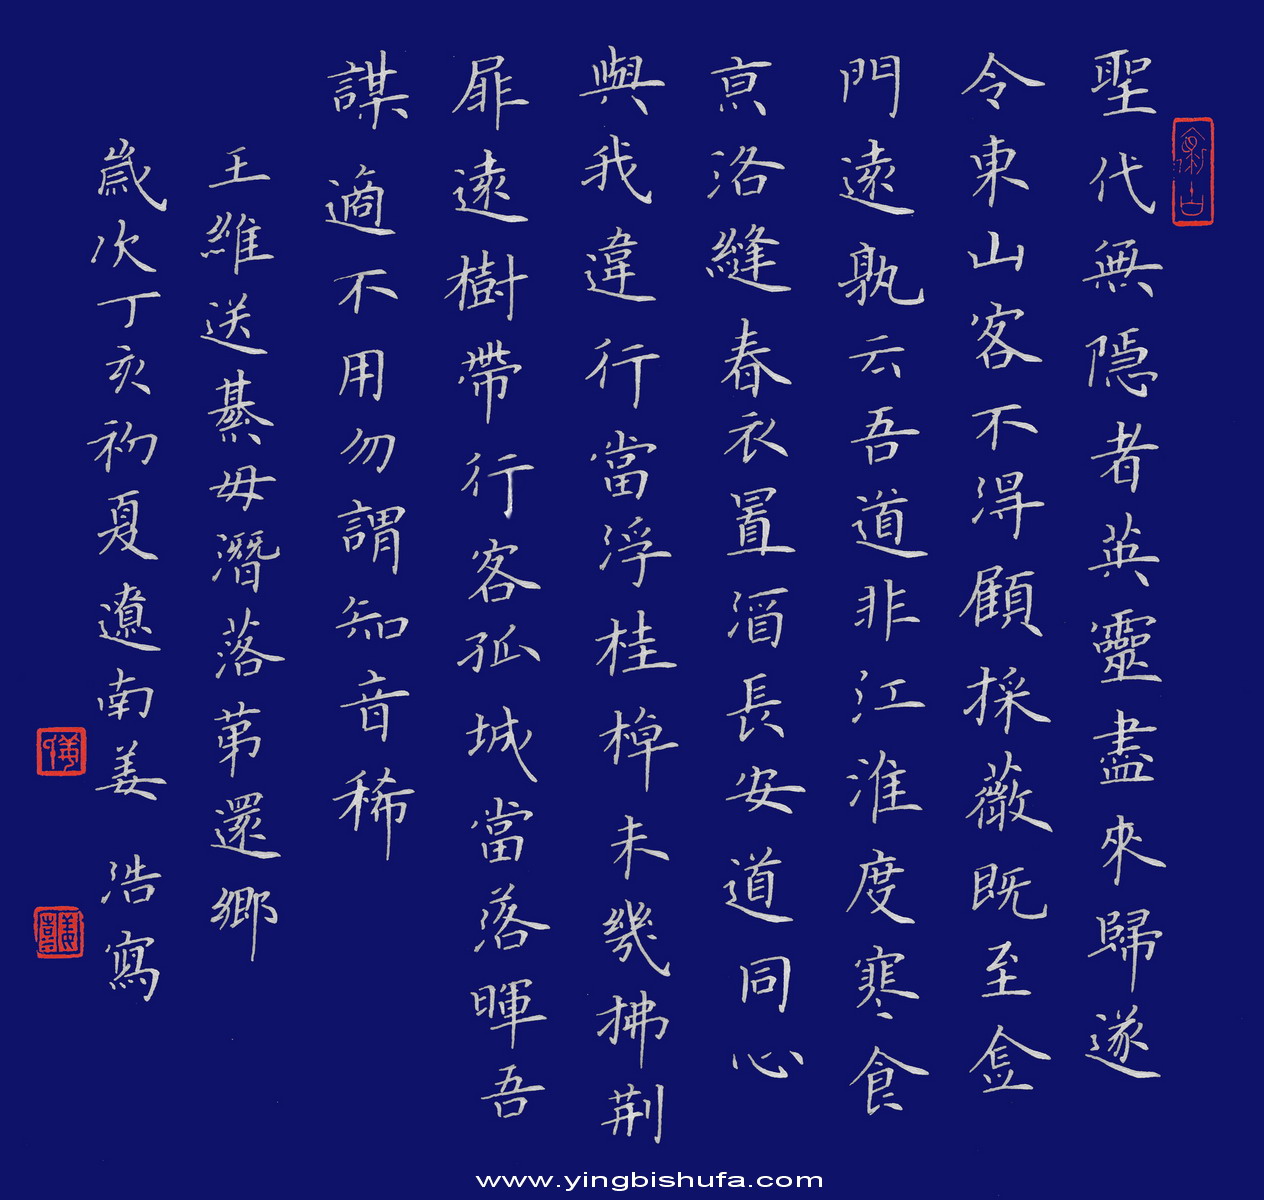 聖代無隱者英靈盡來歸遂
令東山客不得顧採薇既至金
門遠孰云吾道非江淮度寒食
京洛縫春衣置酒長安道同心
與我違行當浮桂棹未幾拂荆
扉遠樹帶行客孤城當落暉吾
謀適不用勿謂知音稀
王維送綦毋潛落第還鄉
歲次丁亥初夏遼南姜浩寫
www.yingbishufa.com